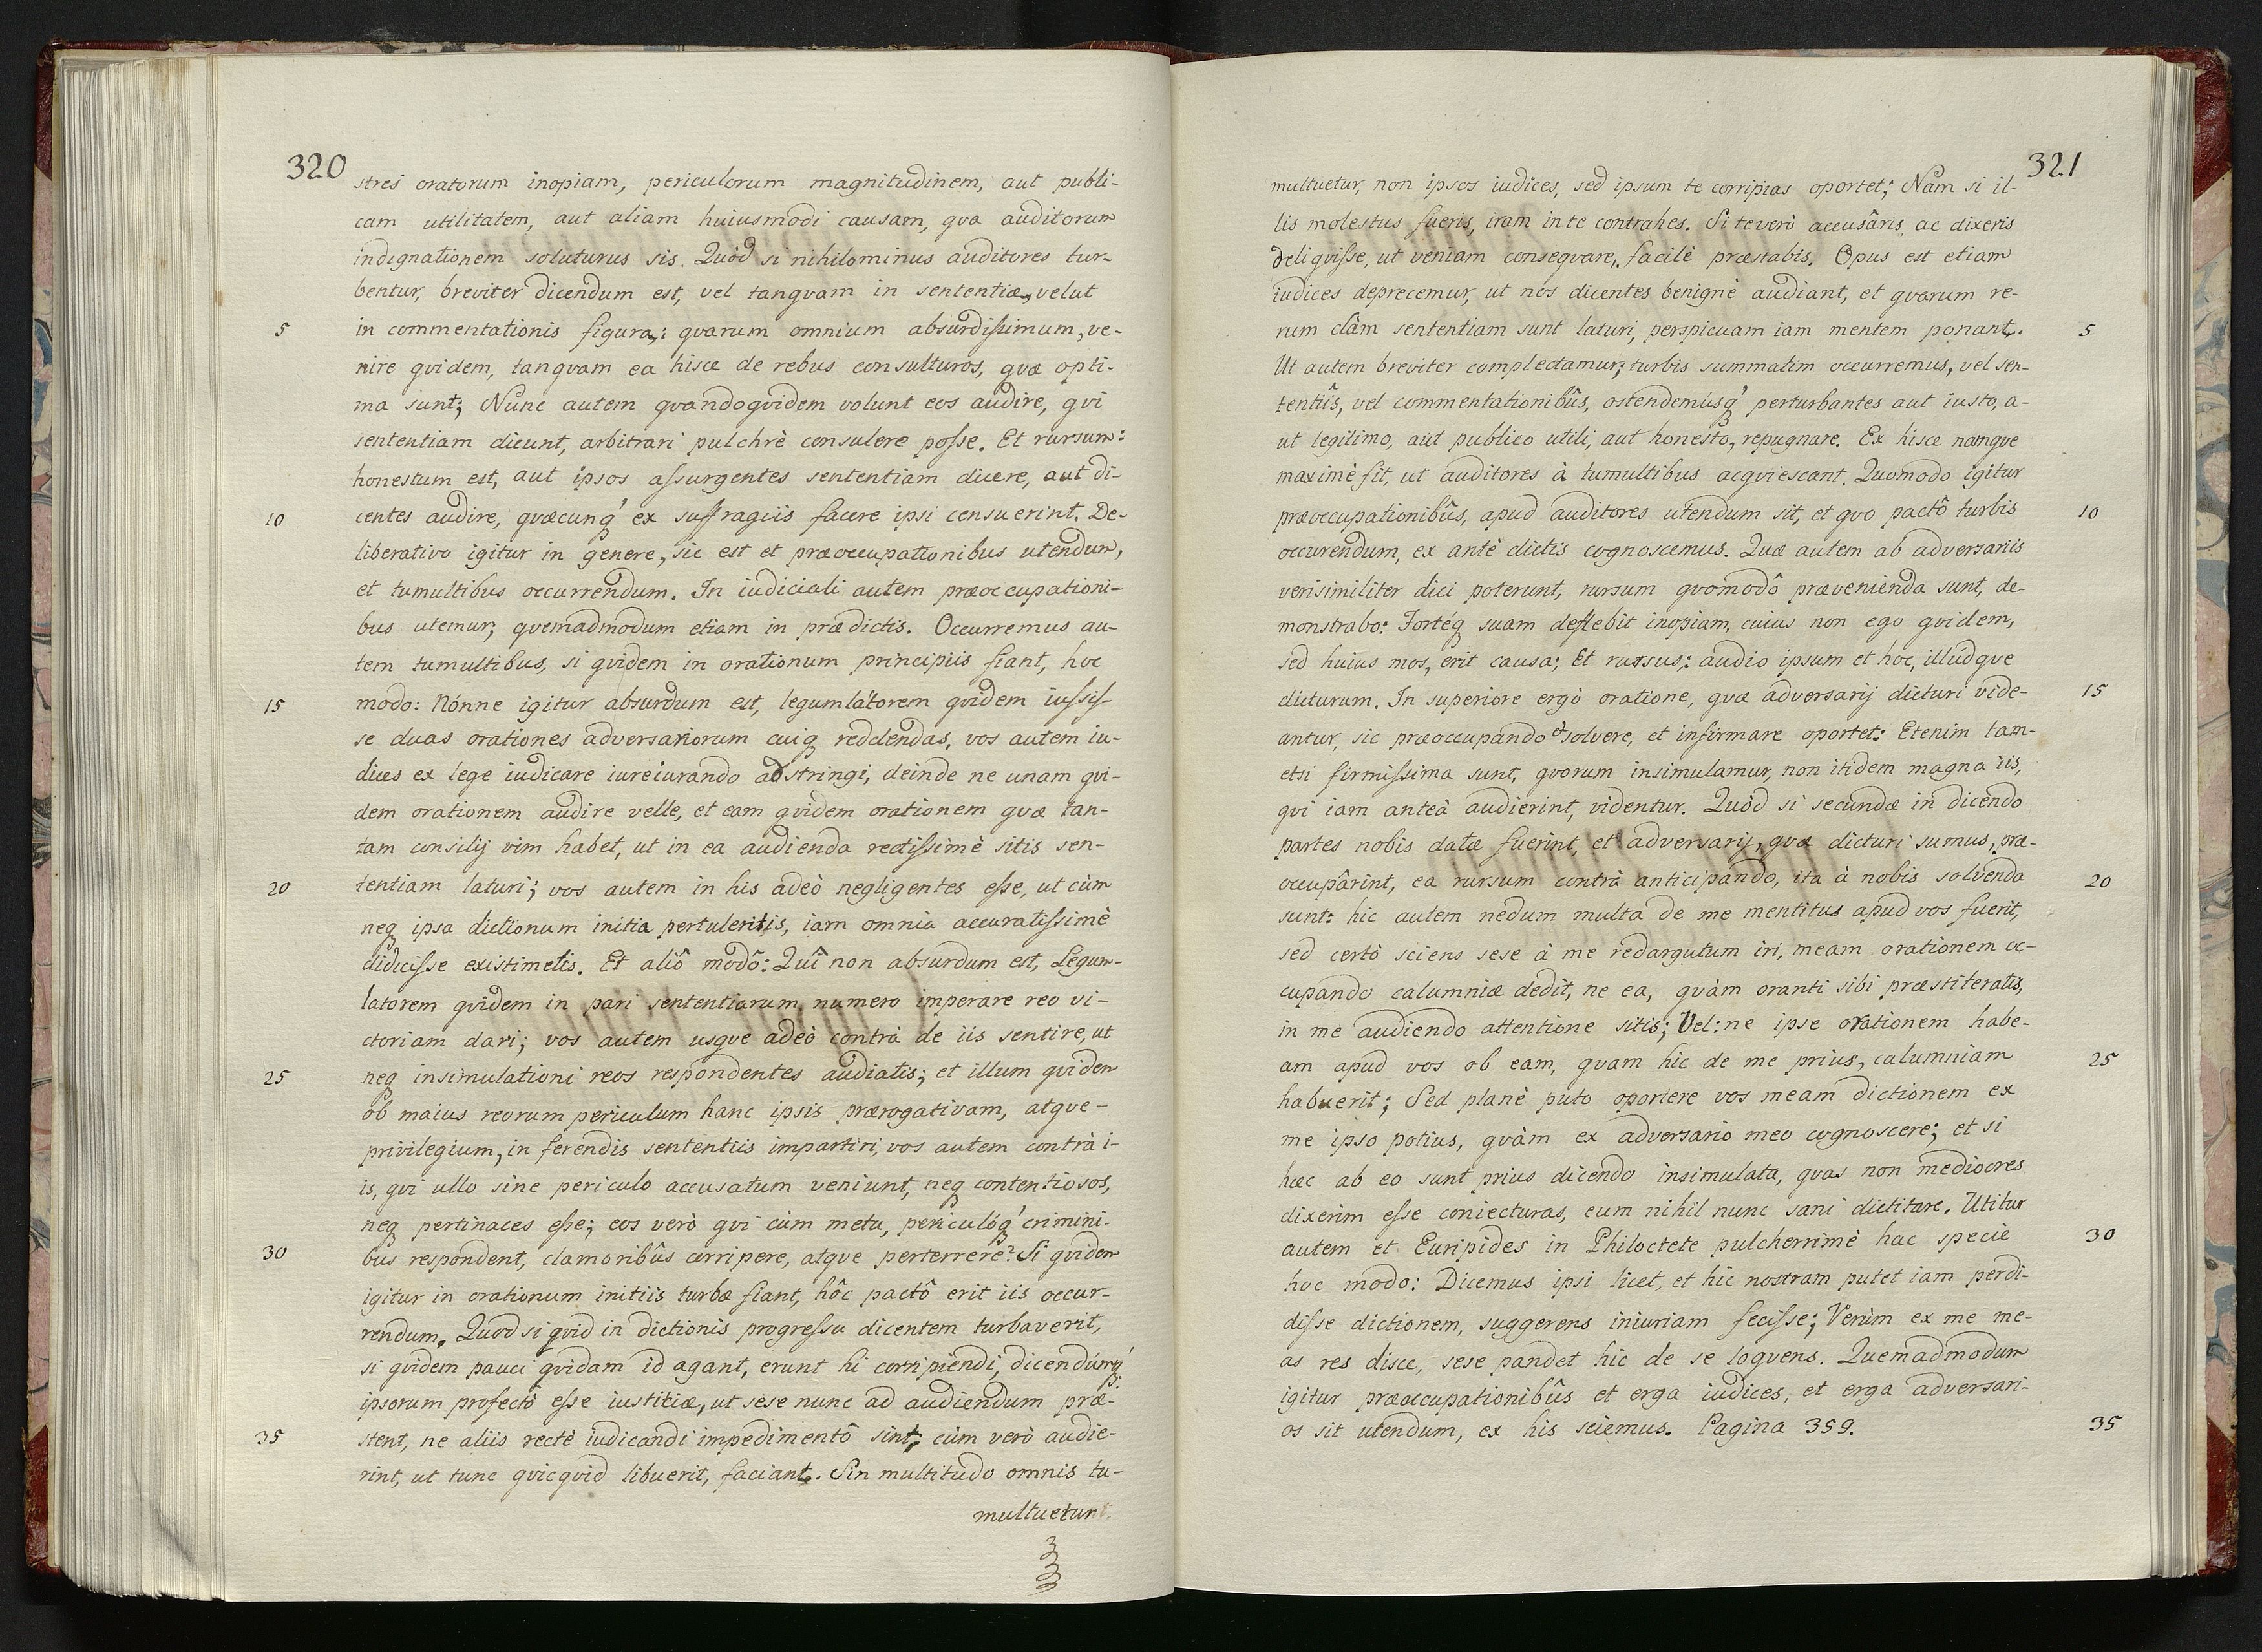 320
stres oratorum inopiam, periculorum magnitudinem, aut publi-
cam utilitatem, aut aliam huiusmodi causam, qva auditorum
indignationem soluturus sis. Quòd si nihilominus auditores tur-
bentur, breviter dicendum est, vel tanqvam in sententiæ, velut
5 in commentationis figura,: qvarum omnium absurdissimum, ve-
nire qvidem, tanqvam ea hisce de rebus consulturos, qvæ opti-
ma sunt; Nunc autem qvandoqvidem volunt eos audire, qvi
sententiam dicunt, arbitrari pulchrè consulere posse. Et rursum:
honestum est, aut ipsos assurgentes sententiam dicere, aut di-
10 centes audire, qvæcunq́ ex suffragiis facere ipsi censuerint. De-
liberativo igitur in genere, sic est et præoccupationibus utendum,
et tumultibus occurrendum. In iudiciali autem præoccupationi-
bus utemur, qvemadmodum etiam in prædictis. Occurremus au-
tem tumultibus, si qvidem in orationum principiis fiant, hoc
15 modo: Nónne igitur absurdum est, legumlátorem qvidem iussis-
se duas orationes adversariorum cuiq reddendas, vos autem iu-
dices ex lege iudicare iureiurando adstringi, deinde ne unam qvi-
dem orationem audire velle, et eam qvidem orationem qvæ tan-
tam consilij vim habet, ut in ea audienda rectissimè sitis sen-
20 tentiam laturi; vos autem in his adeò negligentes esse, ut cùm
neq ipsa dictionum initia pertuleritis, iam omnia accuratissimè
didicisse existimetis. Et aliô modô: Quî non absurdum est, Legum-
latorem qvidem in pari sententiarum numero imperare reo vi-
ctoriam dari; vos autem usqve adeò contrà de iis sentire, ut
25 neq insimulationi reos respondentes audiatis; et illum qvidem
ob maius reorum periculum hanc ipsis prærogativam, atqve-
privilegium, in ferendis sententiis impartiri, vos autem contrà i-
is, qvi ullo sine periculo accusatum veniunt, neq contentiosos,
neq pertinaces esse; eos verò qvi cùm metu, periculóq́ crimini-
30 bus respondent, clamoribûs corripere, atqve perterrere? Si qvidem
igitur in orationum initiis turbæ fiant, hôc pactô erit iis occur-
rendum. Quod si qvid in dictionis progressu dicentem turbaverit,
si qvidem pauci qvidam id agant, erunt hi corripiendi, dicendúmq́
ipsorum profectò esse iustitiæ, ut sese nunc ad audiendum præ-
35 stent, ne aliis rectè iudicandi impedimentô sint, cùm verò audie-
rint, ut tunc qvicqvid libuerit, faciant. Sin multitudo omnis tu-
multuetur
321
multuetur, non ipsos iudices, sed ipsum te corripias oportet; Nam si il-
lis molestus fueris, iram in te contrahes. Si te verò accusâris, ac dixeris
deliqvisse, ut veniam conseqvare, facilè præstabis. Opus est etiam
iudices deprecemur, ut nos dicentes benignè audiant, et qvarum re-
rum clàm sententiam sunt laturi, perspicuam iam mentem ponant. 5
Ut autem breviter complectamur; turbis summatim occurremus, vel sen-
tentiîs, vel commentationibûs, ostendemúsq́ perturbantes aut iusto, a-
ut legitimo, aut publico utili, aut honesto, repugnare. Ex hisce namqve
maximè fit, ut auditores à tumultibus acqviescant. Quomodo igitur
præoccupationibûs, apud auditores utendum sit, et qvo pactô turbis 10
occurendum, ex antè dictis cognoscemus. Quæ autem ab adversariis
verisimiliter dici poterunt, rursum qvomodô prævenienda sunt, de-
monstrabo: Fortéq suam deflebit inopiam, cuius non ego qvidem,
sed huius mos, erit causa; Et russus: audio ipsum et hoc, illúdqve
dicturum. In superiore ergò oratione, qvæ adversarij dicturi vide- 15
antur, sic præoccupando et solvere, et infirmare oportet: Etenim tam-
etsi firmissima sunt, qvorum insimulamur, non itidem magna iis,
qvi iam anteà audierint, videntur. Quòd si secundæ in dicendo
partes nobis datæ fuerint, et adversarij, qvæ dicturi sumus, præ-
occupârint, ea rursum contrà anticipando, ita à nobis solvenda 20
sunt: hic autem nedum multa de me mentitus apud vos fuerit,
sed certò sciens sese à me redargutum iri, meam orationem oc-
cupando calumniæ dedit, ne ea, qvàm oranti sibi præstiteratis,
in me audiendo attentione sitis; Vel: ne ipse orationem habe-
am apud vos ob eam, qvam hic de me prius, calumniam 25
habuerit; Sed planè puto oportere vos meam dictionem ex
me ipso potius, qvàm ex adversario meo cognoscere; et si
hæc ab eo sunt prius dicendo insimulata, qvas non mediocres
dixerim esse coniecturas, eum nihil nunc sani dictitare. Utitur
autem et Euripides in Philoctete pulcherrimè hac specie 30
hoc modo: Dicemus ipsi licet, et hic nostram putet iam perdi-
disse dictionem, suggerens iniuriam fecisse; Verùm ex me me-
as res disce, sese pandet hic de se loqvens. Quemadmodum
igitur præoccupationibûs et erga iudices, et erga adversari-
os sit utendum, ex his sciemus. Pagina 359. 35